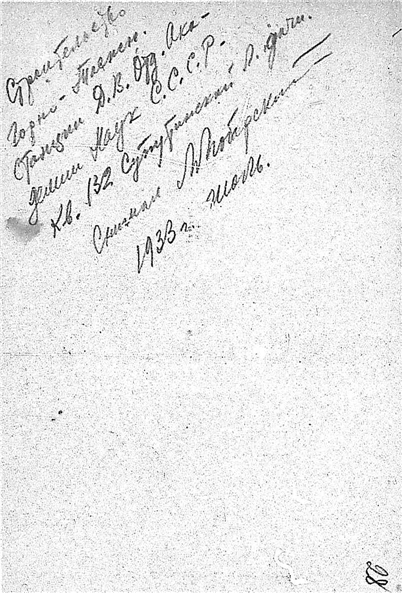 Строительство
Горно-Таежн.
Станции Д.В. Отд. Ака-
демии Наук С.С.С.Р.
Кв. 132 Супутинской л. дачи.
Снимал
1933 г. июль.
28